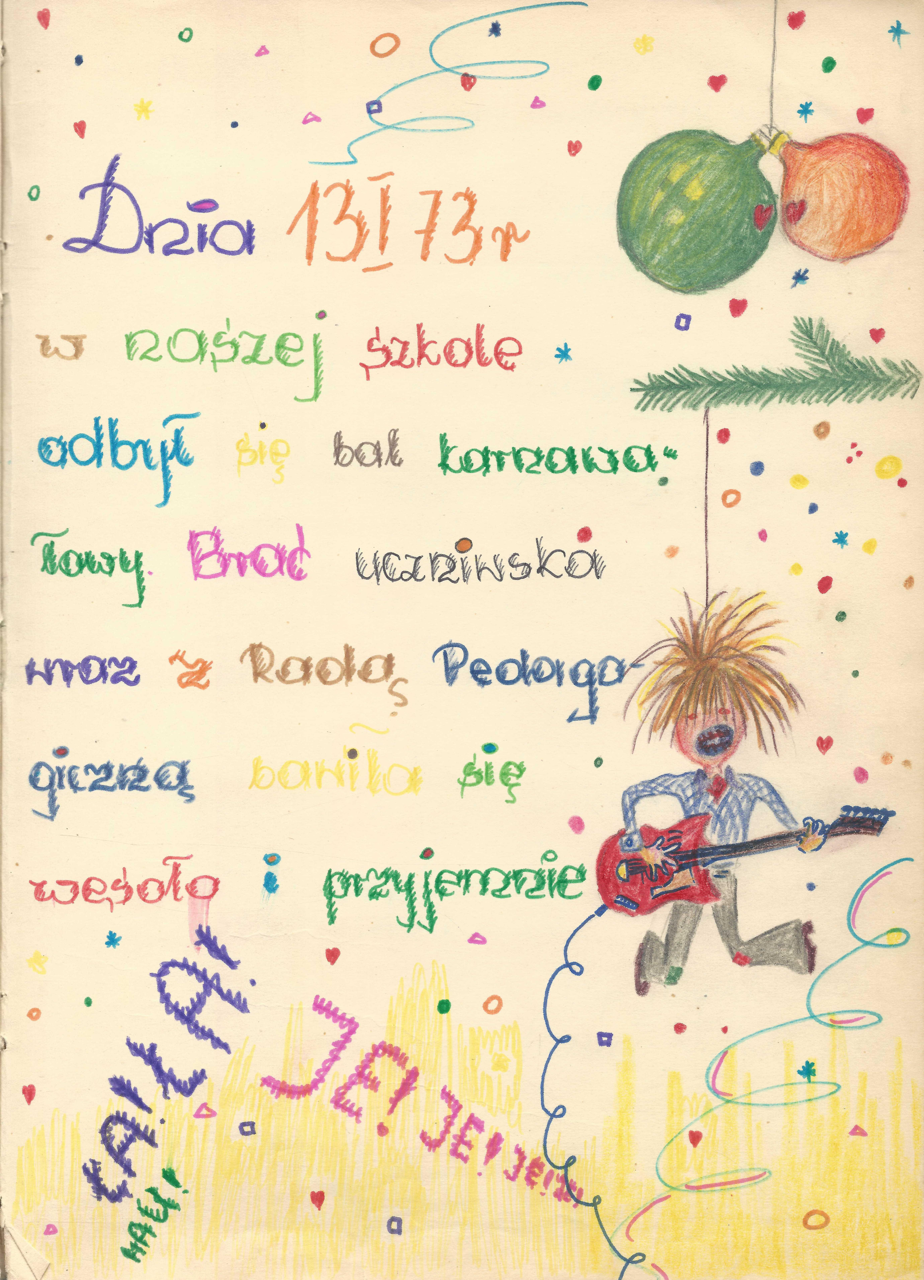 Dnia 13 I 73 r
w naszej szkole
odbył się bal karnawa-
łowy. Brać uczniwska
wraz z Radą Pedago-
giczną bawiła się
wesoło i przyjemnie
JE! JE! JE!